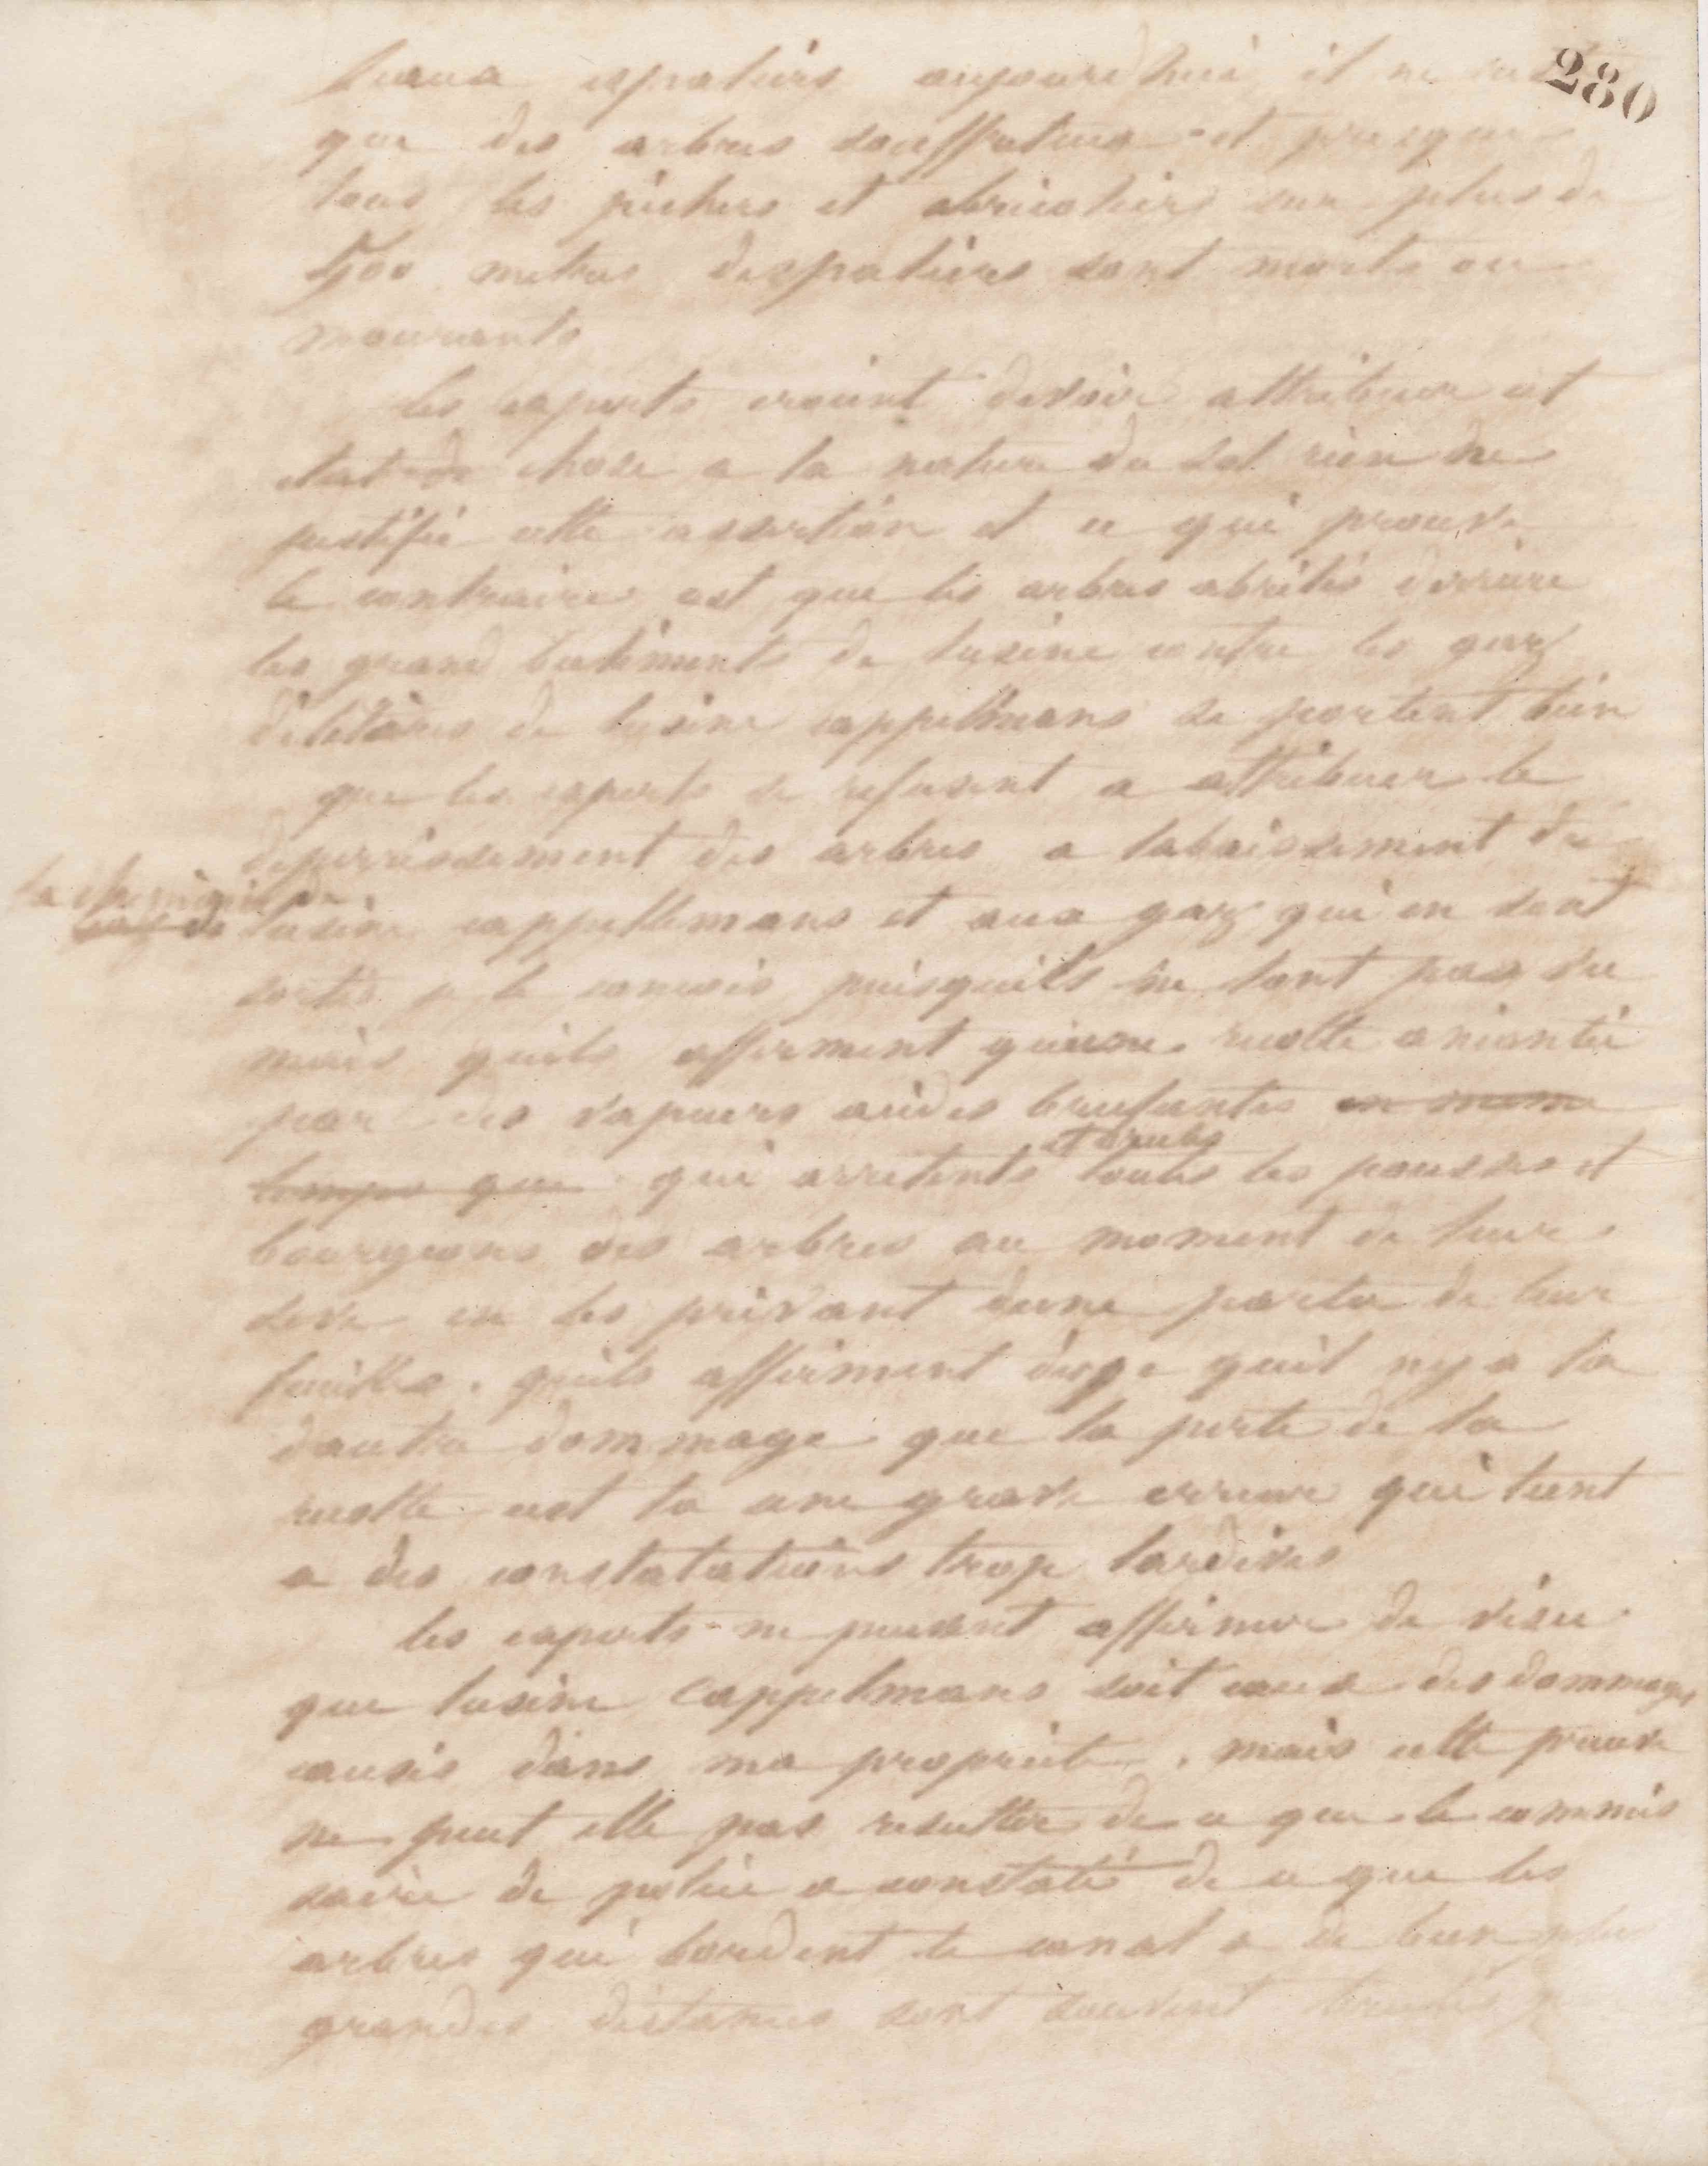 280
beaux espaliers aujourdhui il ne
que des arbres souffreteux et presque
tous les pechers et abricotiers sur plus de
500 metres despaliers sont morts ou
mourants
les experts croient devoir attribuer cet
etat de chose a la nature du sol rien ne
justifie cette assertion et ce qui prouve
le contraire est que les arbres abrités derriere
les grand batiments de lusine contre les gaz
déletères de lusine cappellmans se portent bien
que les experts se refusent a attribuer le
deperrissement des arbres a labaissement de
la cheminée de
lusine cappellemans et aux gaz qui en sont
sortis je le concois puisquils ne lont pas vu
mais quils affirment quune recolte anéantie
par des vapeurs acides brulantes en meme
temps que qui arretents toutes les pousses et
et brules
bourgeons des arbres au moment de leur
seve en les privant dune partie de leur
feuilles. quils affirment disje quil ny a la
dautre dommage que la perte de la
recolte cest la une grave erreur qui tient
a des constatations trop tardives
les experts ne peuvent affirmer de visu
que lusine Cappelmans soit cause des dommages
causés dans ma propriete. mais cette preuve
ne peut elle pas resulter de ce que le commis
saire de police a constaté de ce que les
arbres qui bordent le canal a de bien plus
grandes distances sont souvent brulés